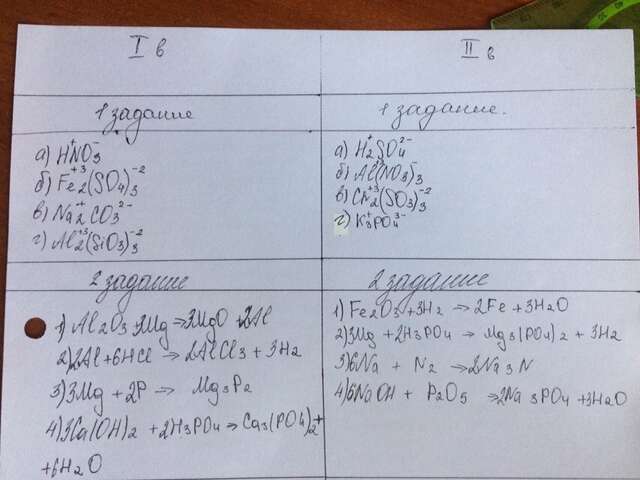 I в
II в
1 задание
1 задание.
а) H⁺NO₃⁻
б) Fe₂⁺³(SO₄)₃⁻²
в) Na₂⁺CO₃²⁻
г) Al₂⁺³(SiO₃)₃⁻²
а) H₂⁺SO₄²⁻
б) Al⁺³(NO₃)₃⁻
в) Cr₂⁺³(SO₃)₃⁻²
г) K₃⁺PO₄³⁻
2 задание
1) Al₂O₃ + 3Mg → 3MgO + 2Al
2) 2Al + 6HCl → 2AlCl₃ + 3H₂
3) 3Mg + 2P → Mg₃P₂
4) 3Ca(OH)₂ + 2H₃PO₄ → Ca₃(PO₄)₂ +
+ 6H₂O
2 задание
1) Fe₂O₃ + 3H₂ → 2Fe + 3H₂O
2) 3Mg + 2H₃PO₄ → Mg₃(PO₄)₂ + 3H₂
3) 6Na + N₂ → 2Na₃N
4) 6NaOH + P₂O₅ → 2Na₃PO₄ + 3H₂O